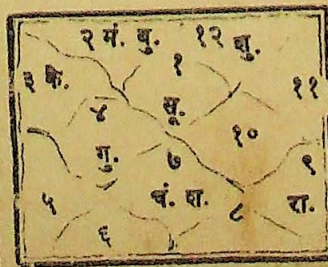 २ मं. बु. १२ शु.
१
३ के. ११
४ सू. १०
गु. ७ ९
५ चं. श. ८ रा.
६